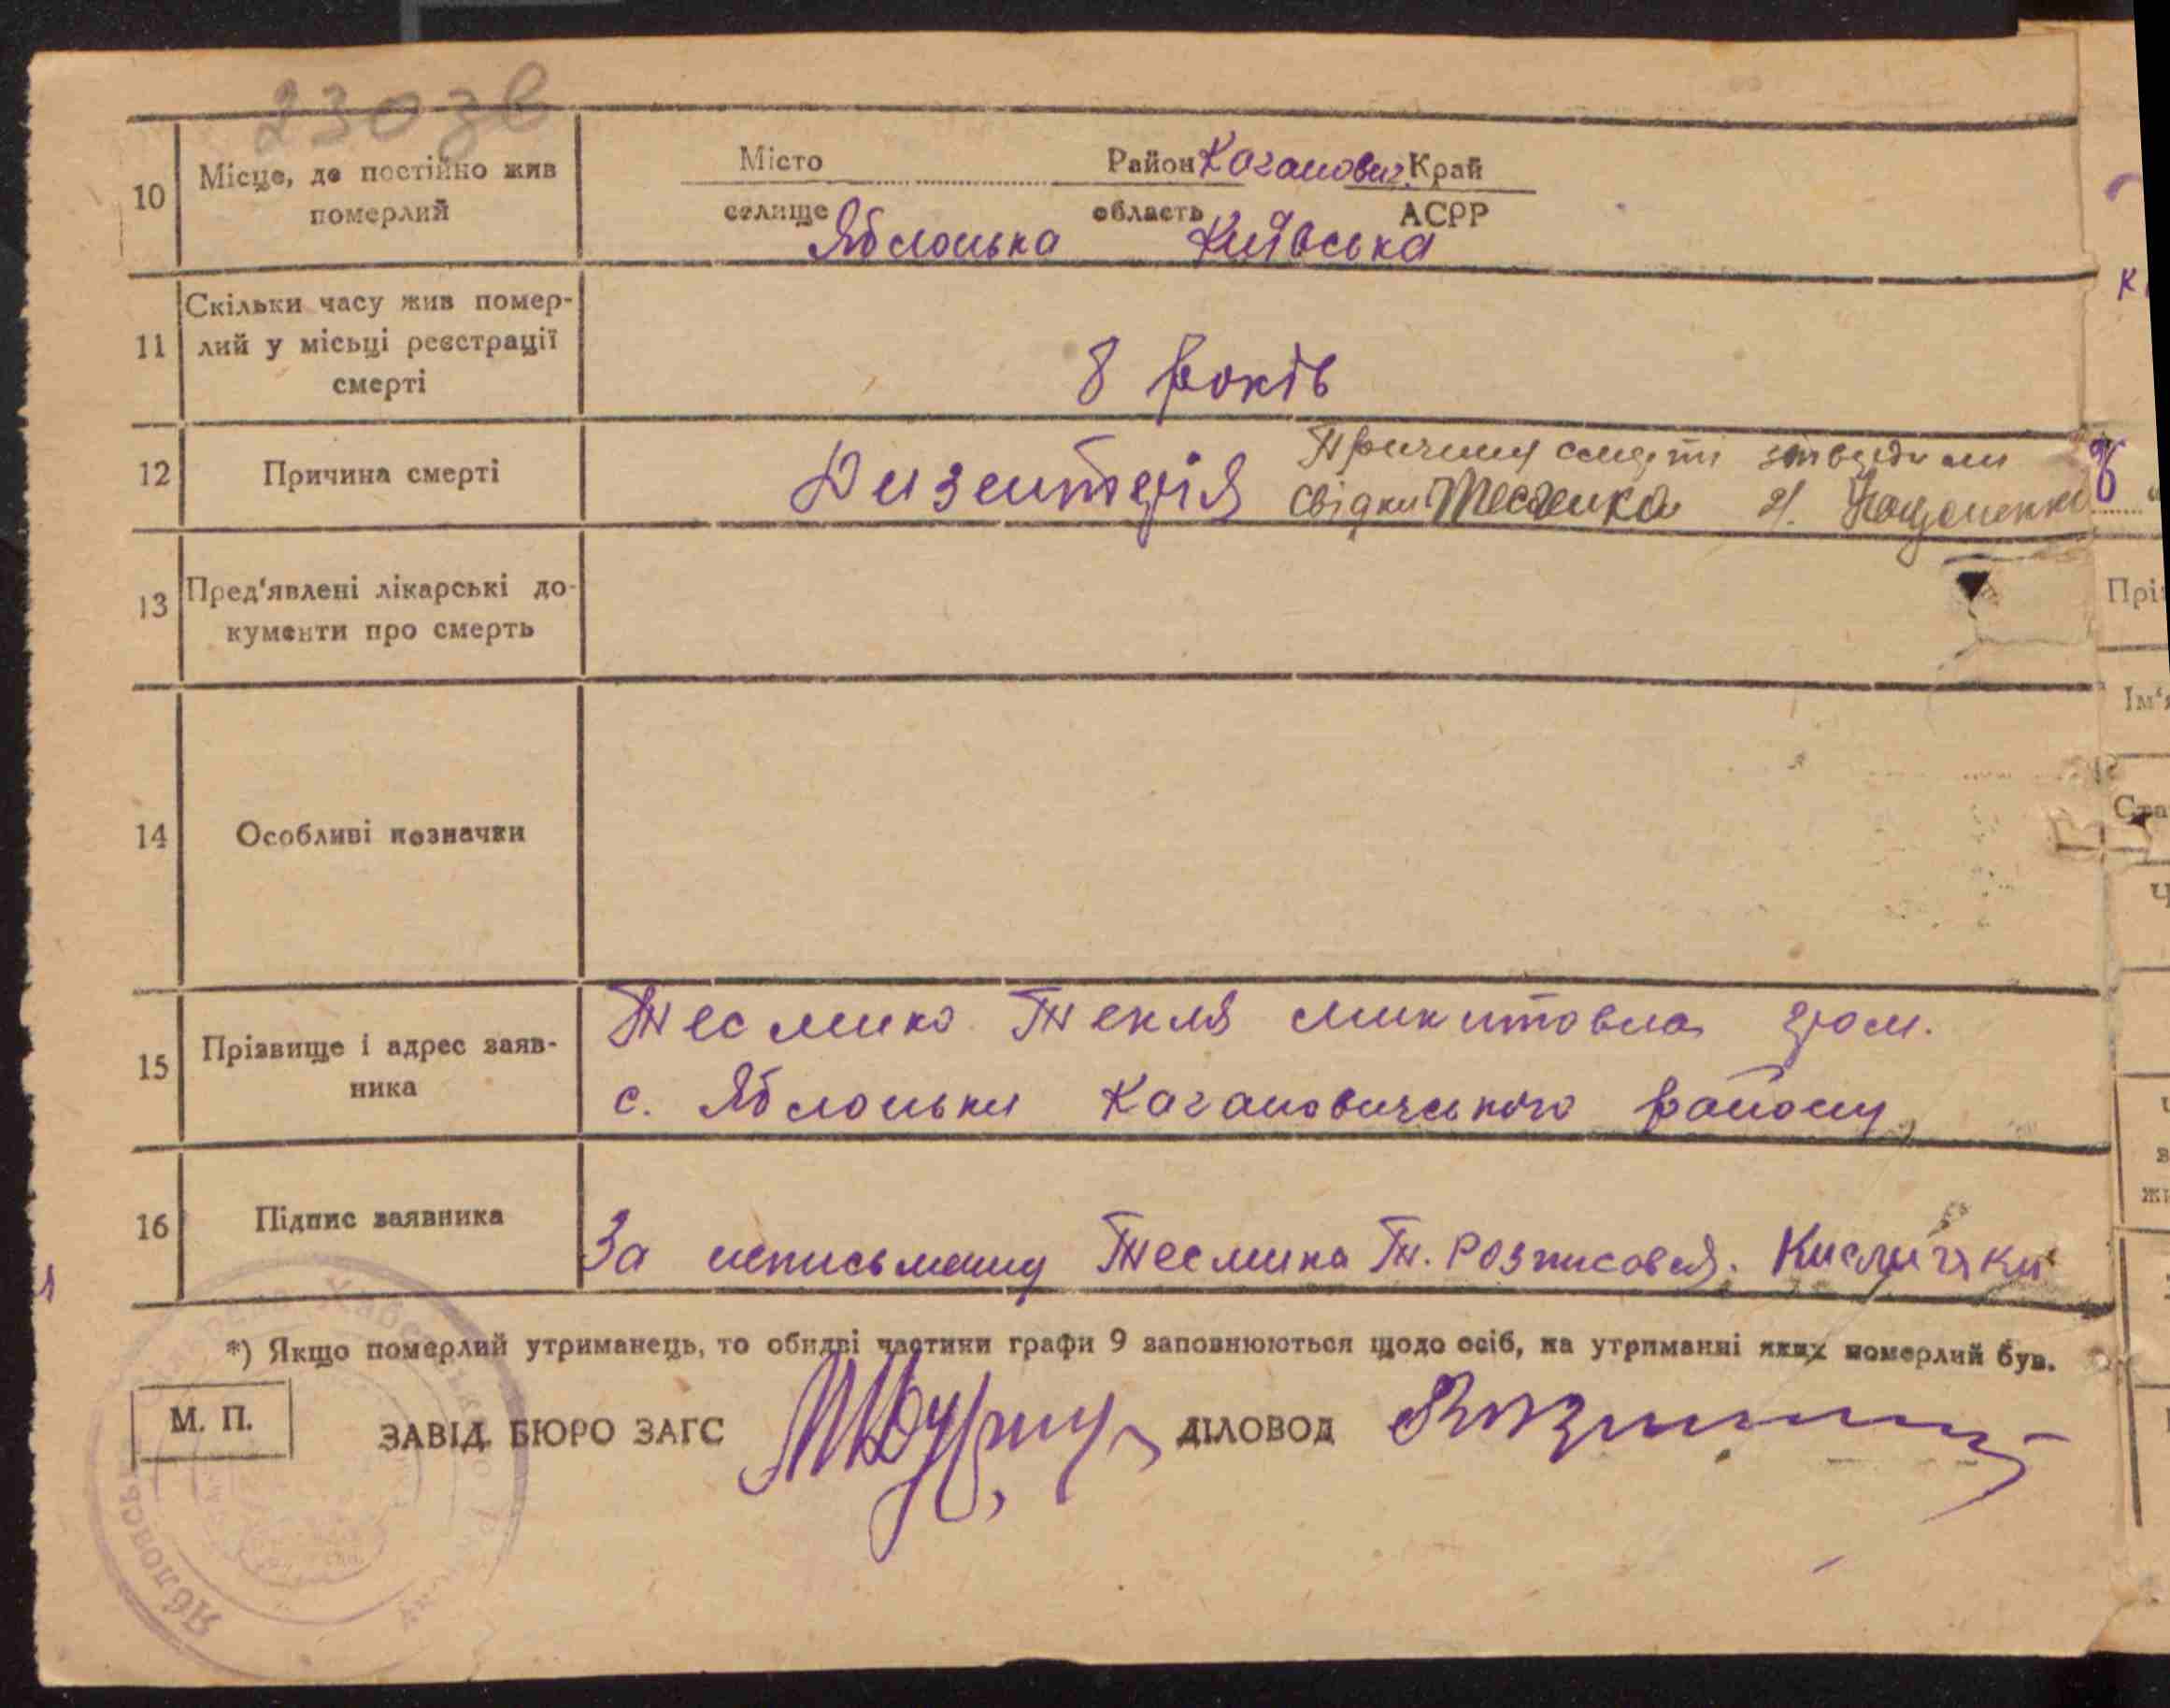 230 зв
10 Місце, де постійно жив померлий
Місто Район Каганович. Край
селище Яблонька область Київська АСРР
11 Скільки часу жив помер-
лий у місьці реєстрації
смерті
8 років
12 Причина смерті
Дизентерія Причину смерті
свідки
13 Пред'явлені лікарські до-
кументи про смерть
14 Особливі позначки
15 Прізвище і адрес заяв-
ника
Тесмино Текля Микитовна гром.
с. Яблоньки Кагановичського району
16 Підпис заявника
За неписьмену Тесмина Т. Розписовся.
*) Якщо померлий утриманець, то обидві частини графи 9 заповнюються щодо осіб, на утриманні яких померлий був.
М. П. ЗАВІД. БЮРО ЗАГС ДІЛОВОД